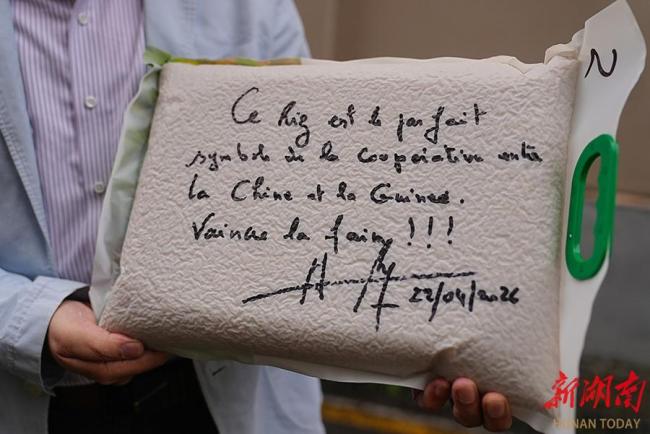 Ce Riz est le parfait
symbole de la coopérative entre
la Chine et la Guinée.
Vaincre la faim !!!
22/04/2026
N
新湖南
HUNAN TODAY